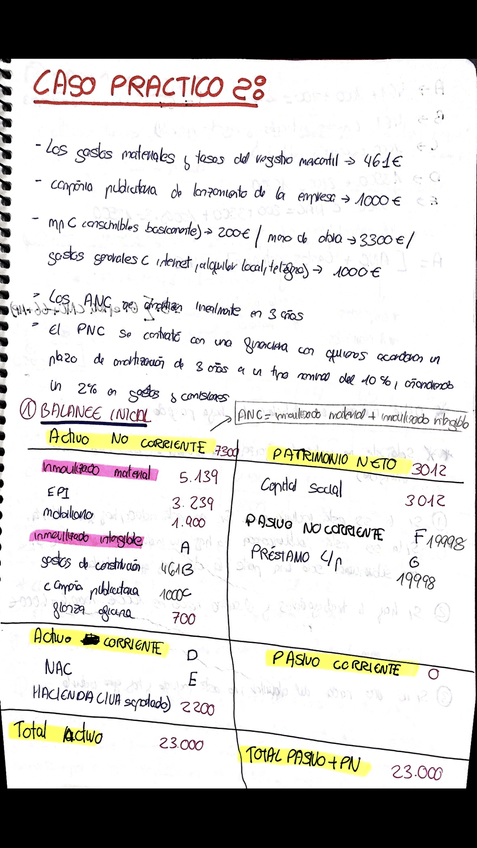 CASO PRACTICO 2º
- Los gastos materiales y tasas del registro mercantil → 461€
- campaña publicitaria de lanzamiento de la empresa → 1000€
- mp C consumibles basicamente) → 200€ / mano de obra → 3300€ /
gastos generales C internet, alquiler local, teléfono) → 1000€
- Los ANC se amortizan linealmente en 3 años
- El PNC se contrata con una financiera con quienes acordaron un
plazo de amortización de 3 años a un tipo nominal del 10%, añadiendo
un 2% en gastos y comisiones
① BALANCE INICIAL
ANC = inmovilizado material + inmovilizado intangible
Activo NO CORRIENTE 7300
Inmovilizado material 5.139
EPI 3.239
mobiliario 1.900
Inmovilizado intangible A
gastos de constitución 461B
campaña publicitaria 1000C
fianza oficina 700
Activo CORRIENTE D
NAC E
HACIENDA (IVA soportado) 2200
Total Activo 23.000
PATRIMONIO NETO 3012
Capital Social 3012
PASIVO NO CORRIENTE F 19998
PRÉSTAMO L/P G
19998
PASIVO CORRIENTE 0
TOTAL PASIVO + PN 23.000